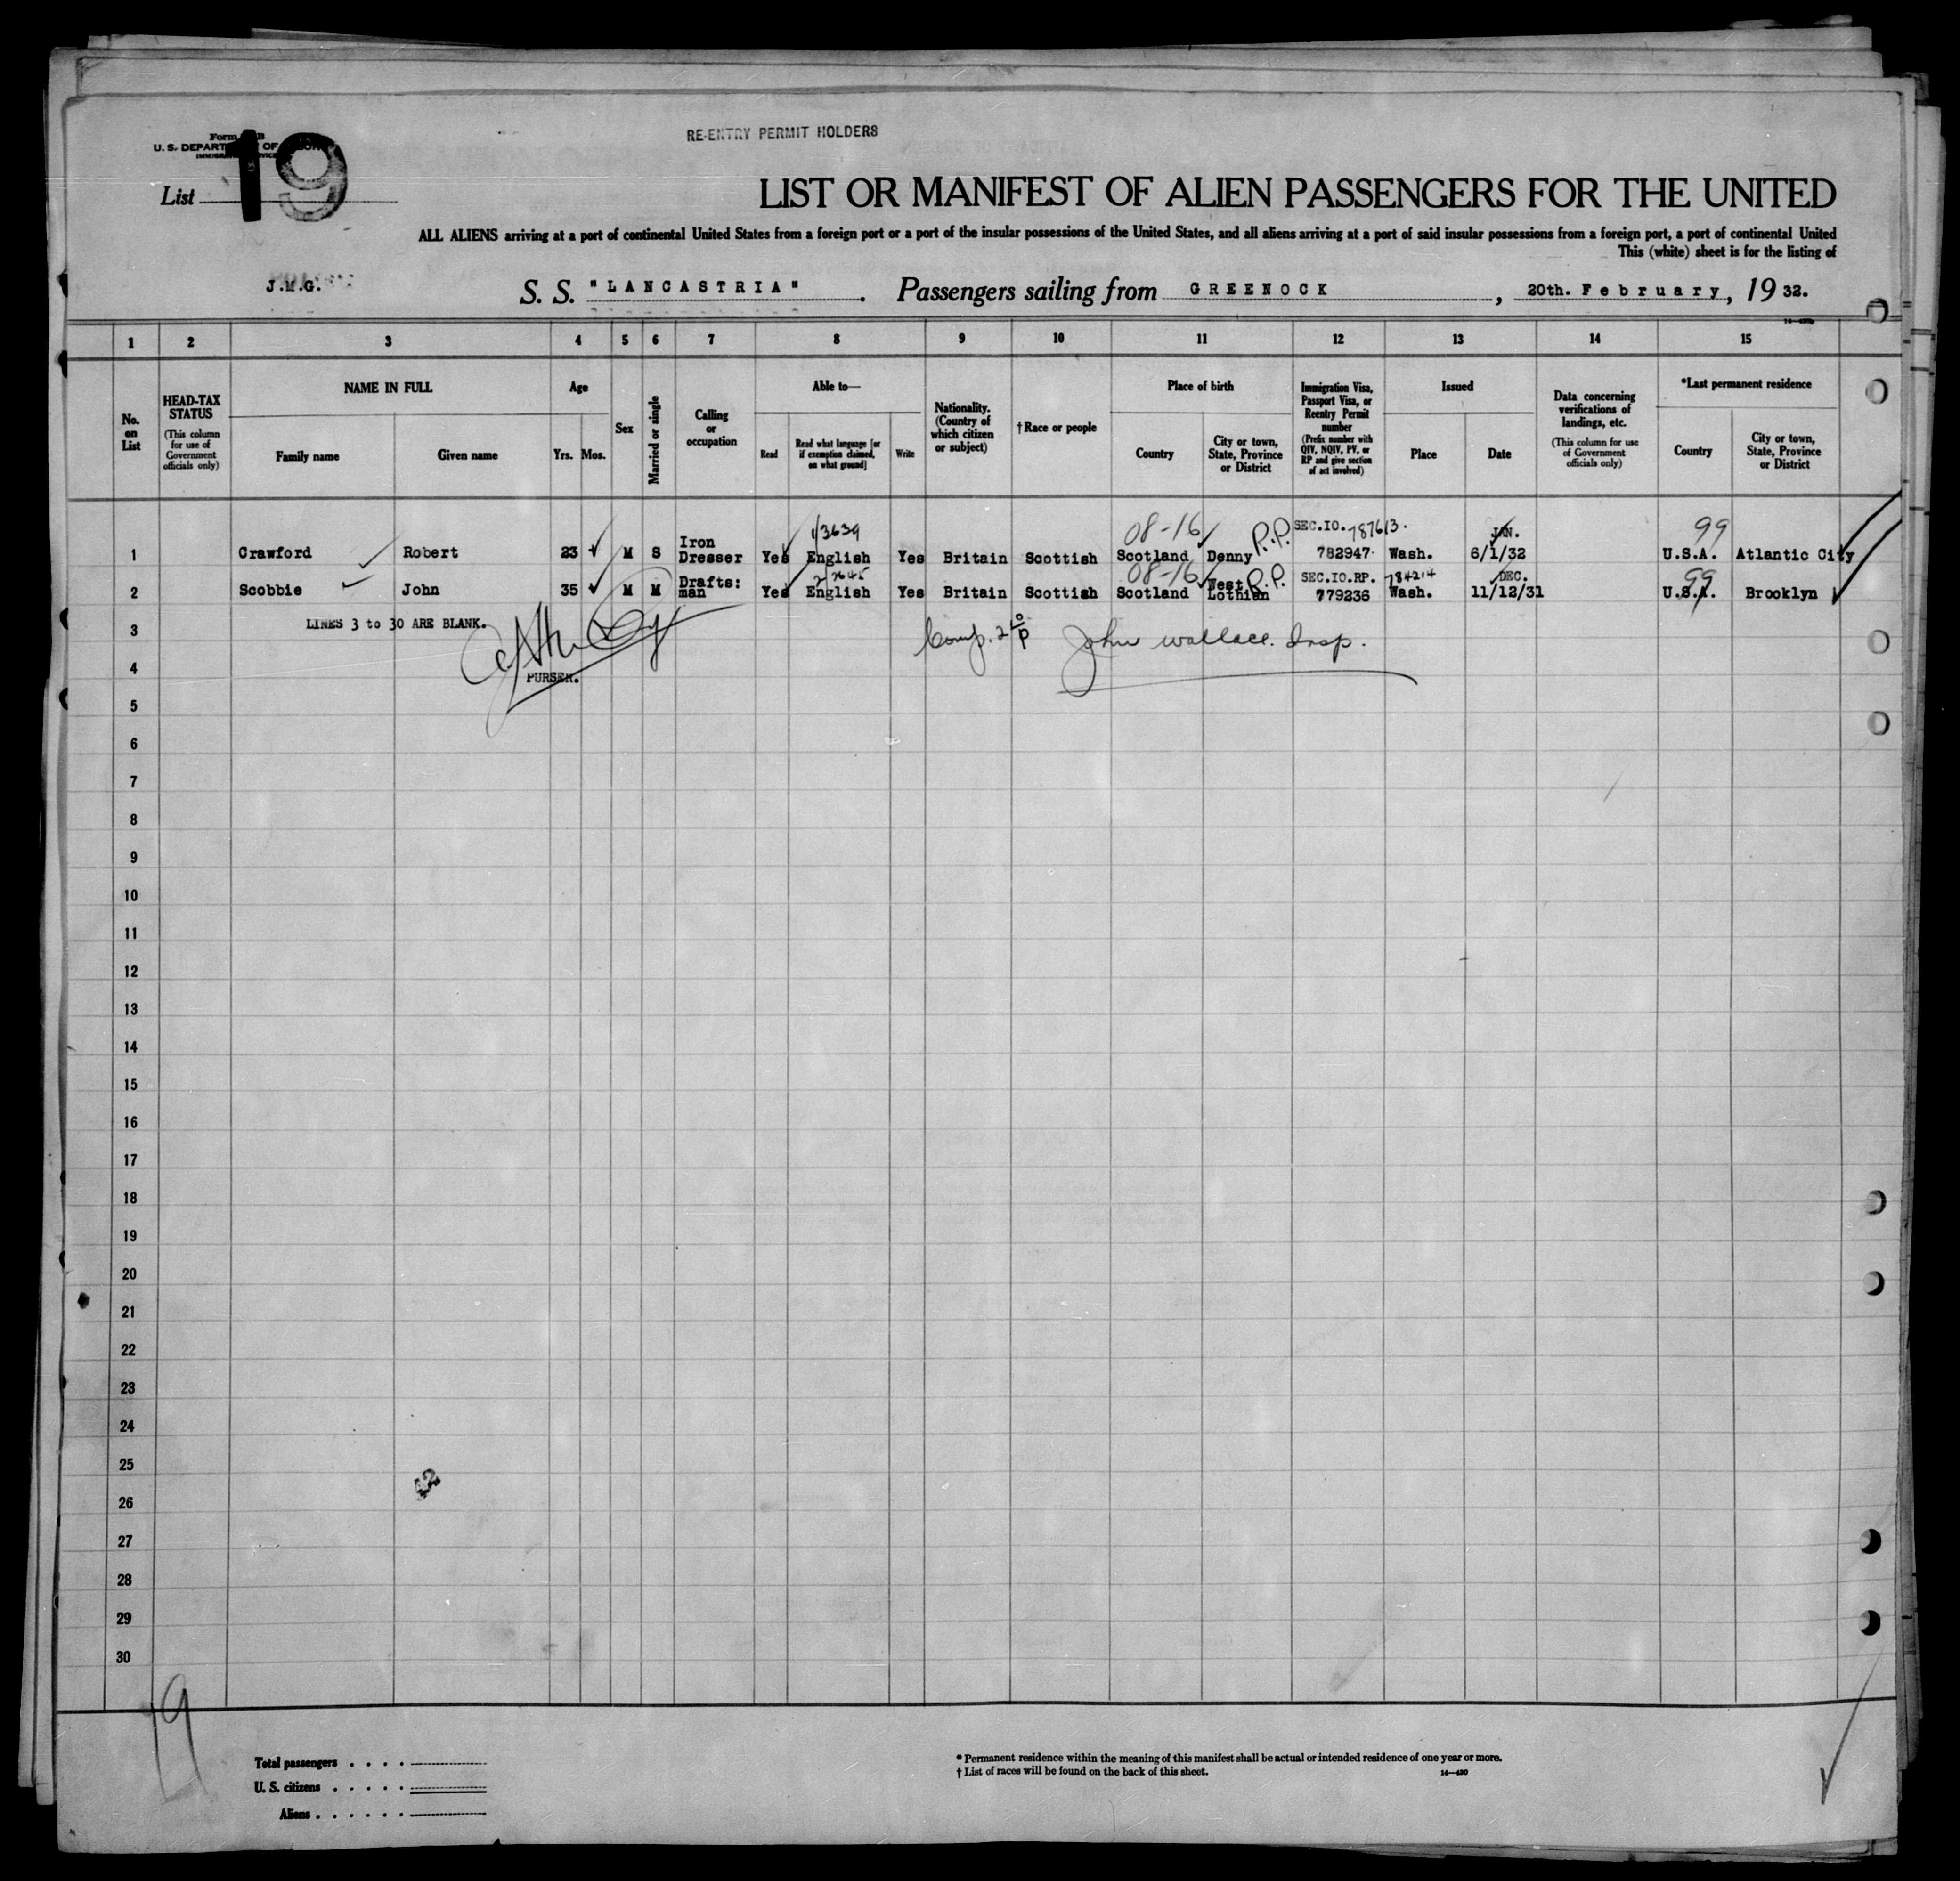 RE-ENTRY PERMIT HOLDERS
Form
U. S. DEPARTMENT OF LABOR
IMMIGRATION SERVICE
List 19
LIST OR MANIFEST OF ALIEN PASSENGERS FOR THE UNITED
ALL ALIENS arriving at a port of continental United States from a foreign port or a port of the insular possessions of the United States, and all aliens arriving at a port of said insular possessions from a foreign port, a port of continental United
This (white) sheet is for the listing of
J.M.G. S. S. "LANCASTRIA" . Passengers sailing from GREENOCK , 20th. February, 19 32.
1 2 3 4 5 6 7 8 9 10 11 12 13 14 15
No. on List
HEAD-TAX STATUS (This column for use of Government officials only)
NAME IN FULL
Family name Given name
Age
Yrs. Mos.
Sex
Married or single
Calling or occupation
Able to—
Read Read what language [or if exemption claimed, on what ground] Write
Nationality. (Country of which citizen or subject)
†Race or people
Place of birth
Country City or town, State, Province or District
Immigration Visa, Passport Visa, or Reentry Permit number (Prefix number with QIV, NQIV, PV, or RP and give section of act involved)
Issued
Place Date
Data concerning verifications of landings, etc. (This column for use of Government officials only)
*Last permanent residence
Country City or town, State, Province or District
13639 08-16 R.P. SEC.IO. 787613. JAN. 99
1 Crawford Robert 23 M S Iron Dresser Yes English Yes Britain Scottish Scotland Denny 782947 Wash. 6/1/32 U.S.A. Atlantic City
08-16 R.P. SEC.IO.RP. 784214 DEC. 99
2 Scobbie John 35 M M Drafts: man Yes English Yes Britain Scottish Scotland West Lothian 779236 Wash. 11/12/31 U.S.A. Brooklyn
LINES 3 to 30 ARE BLANK.
3
Comp. 2 John Wallace. Insp.
4
PURSER.
5
6
7
8
9
10
11
12
13
14
15
16
17
18
19
20
21
22
23
24
25
26
27
28
29
30
19
Total passengers . . . .
U. S. citizens . . . . .
Aliens . . . . . .
* Permanent residence within the meaning of this manifest shall be actual or intended residence of one year or more.
† List of races will be found on the back of this sheet.
14—430